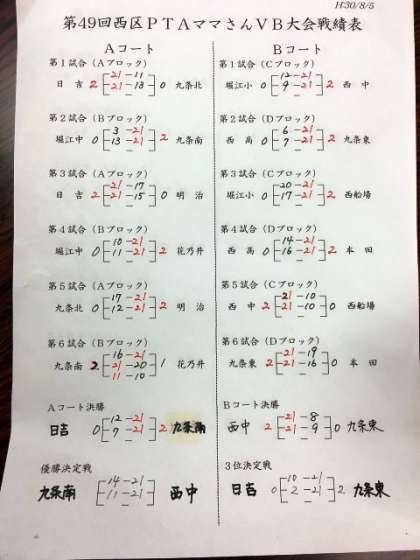 H30/8/5
第49回西区PTAママさんVB大会戦績表
Aコート
第1試合(Aブロック)
日吉 2 21-11 0 九条北
21-13
第2試合(Bブロック)
堀江中 0 3-21 2 九条南
13-21
第3試合(Aブロック)
日吉 2 21-17 0 明治
21-15
第4試合(Bブロック)
堀江中 0 10-21 2 花乃井
11-21
第5試合(Aブロック)
九条北 0 17-21 2 明治
12-21
第6試合(Bブロック)
九条南 2 16-21 1 花乃井
21-20
11-10
Aコート決勝
日吉 0 12-21 2 九条南
7-21
優勝決定戦
九条南 14-21 西中
11-21
Bコート
第1試合(Cブロック)
堀江小 0 12-21 2 西中
9-21
第2試合(Dブロック)
西高 0 6-21 2 九条東
7-21
第3試合(Cブロック)
堀江小 0 20-21 2 西船場
17-21
第4試合(Dブロック)
西高 0 14-21 2 本田
16-21
第5試合(Cブロック)
西中 2 21-10 0 西船場
21-10
第6試合(Dブロック)
九条東 2 21-19 0 本田
21-16
Bコート決勝
西中 2 21-8 0 九条東
21-9
3位決定戦
日吉 0 10-21 2 九条東
2-21